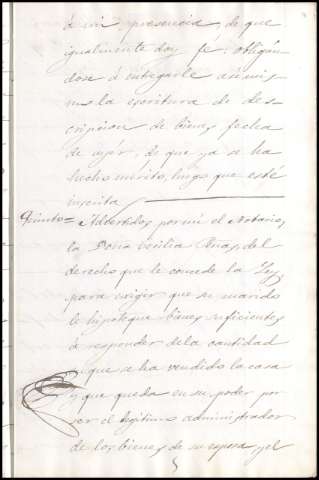 á mi presencia, de que
igualmente doy fé; obligán-
dose á entregarle asimis-
mo la escritura de des-
cripcion de bienes fecha
de ayér, de que ya se ha
hecho mérito, luego que esté
inscrita
Quinto = Advertidos por mí el Notario,
la Doña Cecilia del
derecho que le concede la Ley
para exigir que su marido
le hipoteque bienes suficientes
á responder de la cantidad
en que se ha vendido la casa
y que queda en su poder por
ser el legítimo administrador
de los bienes de su esposa, y el